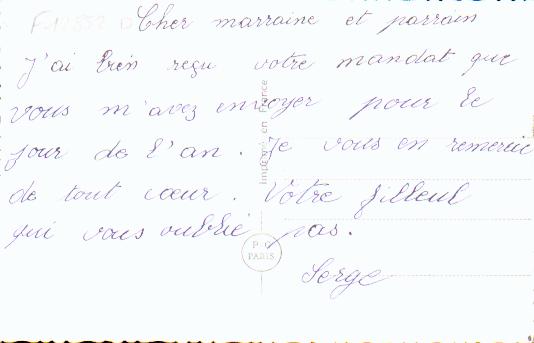 Cher marraine et parrain
J'ai bien reçu votre mandat que
vous m'avez envoyer pour le
jour de l'an. Je vous en remercie
de tout cœur. Votre filleul
qui vous oublié pas.
Serge
Imprimé en France
P.C
PARIS